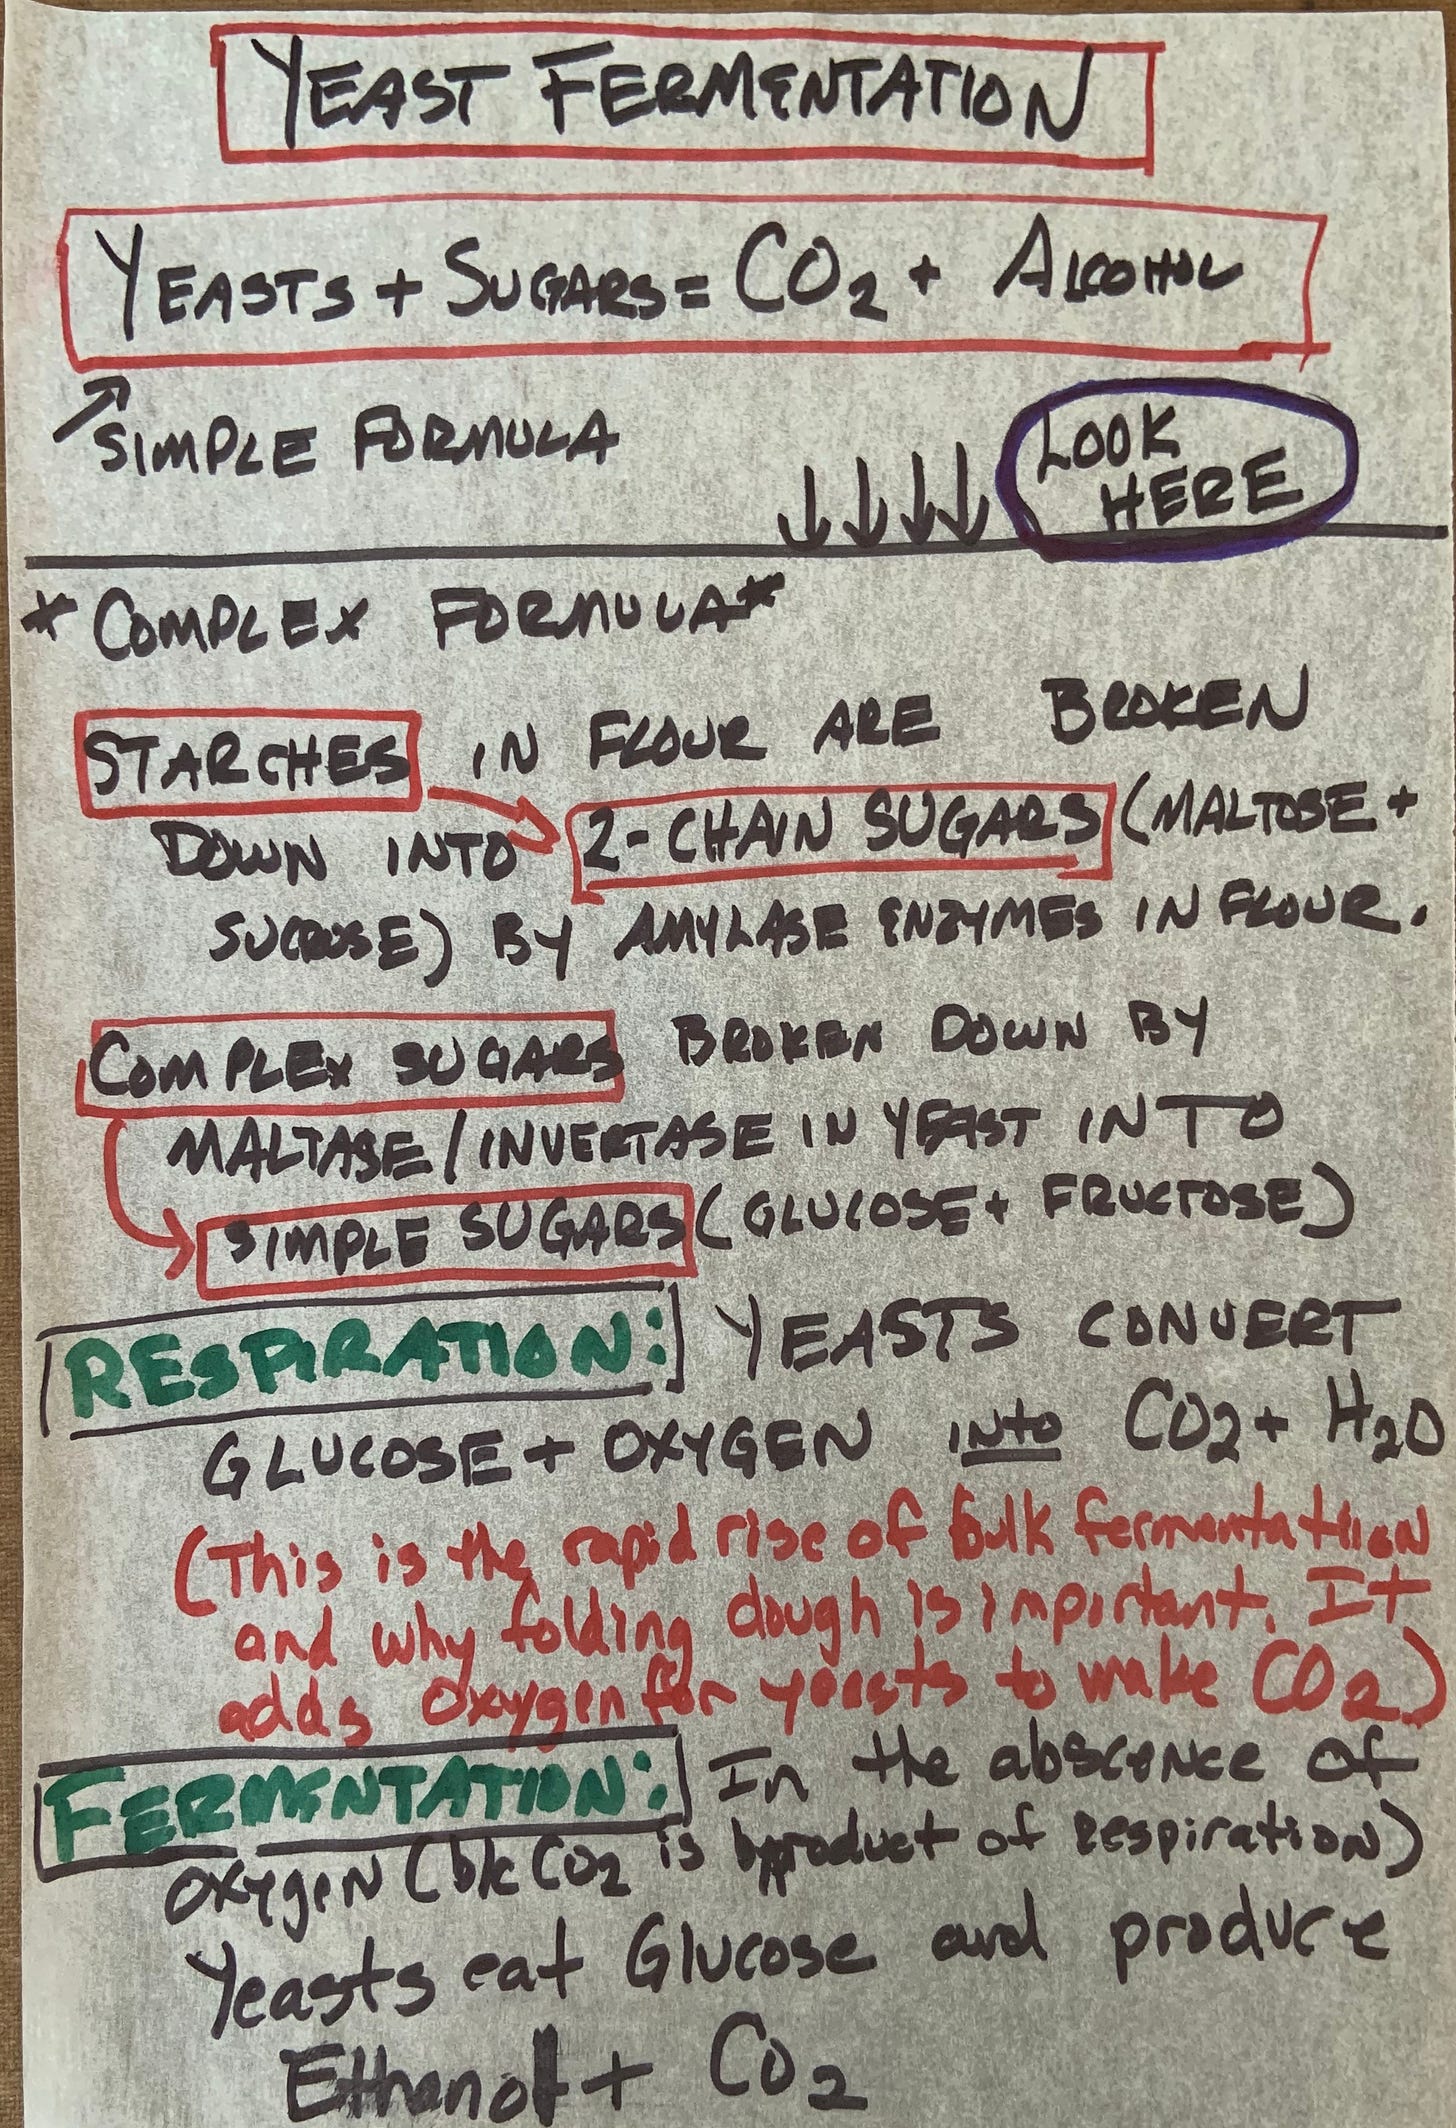 YEAST FERMENTATION
YEASTS + SUGARS = CO2 + ALCOHOL
SIMPLE FORMULA
LOOK
HERE
*COMPLEX FORMULA*
STARCHES IN FLOUR ARE BROKEN
DOWN INTO 2-CHAIN SUGARS (MALTOSE +
SUCROSE) BY AMYLASE ENZYMES IN FLOUR.
COMPLEX SUGARS BROKEN DOWN BY
MALTASE/INVERTASE IN YEAST INTO
SIMPLE SUGARS (GLUCOSE + FRUCTOSE)
RESPIRATION: YEASTS CONVERT
GLUCOSE + OXYGEN INTO CO2 + H2O
(This is the rapid rise of bulk fermentation
and why folding dough is important. It
adds oxygen for yeasts to make CO2)
FERMENTATION: In the abscence of
OXYGEN (b/c CO2 is byproduct of Respiration)
Yeasts eat Glucose and produce
Ethanol + CO2